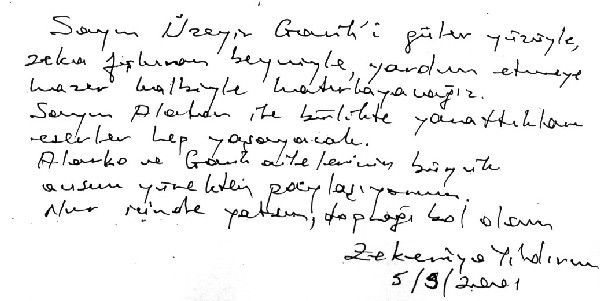 Sayın Üzeyir Garih'i güler yüzüyle,
zeka fışkıran beyniyle, yardım etmeye
hazır kalbiyle hatırlayacağız.
Sayın Alaton ile birlikte yarattıkları
eserler hep yaşayacak.
Alarko ve Garih ailelerinin büyük
acısını yürekten paylaşıyorum.
Nur içinde yatsın, toprağı bol olsun
Zekeriya Yıldırım
5/9/2001